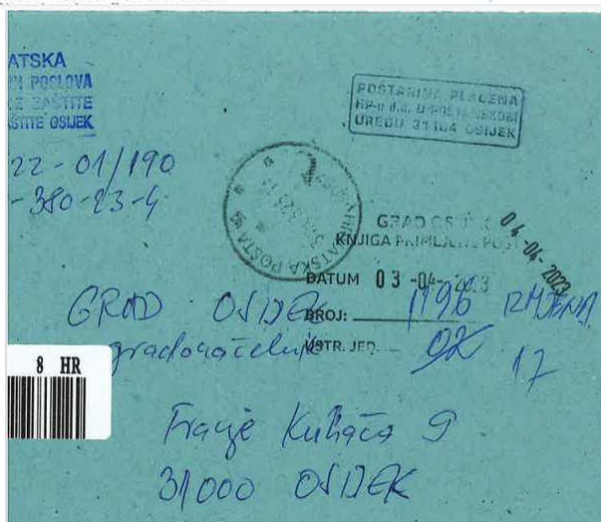 ATSKA
POSLOVA
ZAŠTITE
AŠTITE OSIJEK
22-01/190
-380-23-4
POŠTARINA PLAĆENA
HP-u d.d. U POŠTANSKOM
UREDU 31104 OSIJEK
HRVATSKA POŠTA
GRAD OSIJEK
KNJIGA PRIMLJENE POŠTE
04-04-2023
DATUM 03-04-2023
GRAD OSIJEK
BROJ: 1196 IZMJENA
gradonačelnik
USTR. JED. 02
17
8 HR
Franje Kuhača 9
31000 OSIJEK